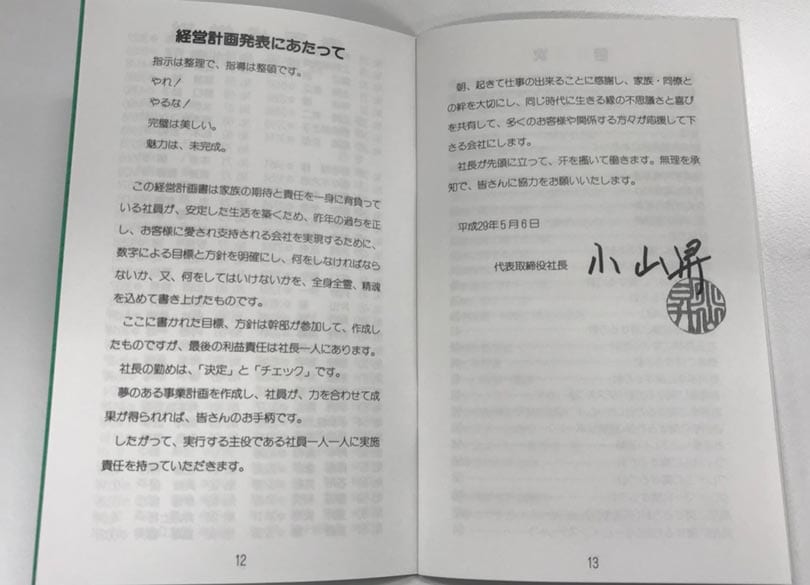 経営計画発表にあたって
指示は整理で、指導は整頓です。
やれ！
やるな！
完璧は美しい。
魅力は、未完成。
この経営計画書は家族の期待と責任を一身に背負って
いる社員が、安定した生活を築くため、昨年の過ちを正
し、お客様に愛され支持される会社を実現するために、
数字による目標と方針を明確にし、何をしなければなら
ないか、又、何をしてはいけないかを、全身全霊、精魂
を込めて書き上げたものです。
ここに書かれた目標、方針は幹部が参加して、作成し
たものですが、最後の利益責任は社長一人にあります。
社長の勤めは、「決定」と「チェック」です。
夢のある事業計画を作成し、社員が、力を合わせて成
果が得られれば、皆さんのお手柄です。
したがって、実行する主役である社員一人一人に実施
責任を持っていただきます。
12
朝、起きて仕事の出来ることに感謝し、家族・同僚と
の絆を大切にし、同じ時代に生きる縁の不思議さと喜び
を共有して、多くのお客様や関係する方々が応援して下
さる会社にします。
社長が先頭に立って、汗を掻いて働きます。無理を承
知で、皆さんに協力をお願いいたします。
平成29年５月６日
代表取締役社長 小山昇
13